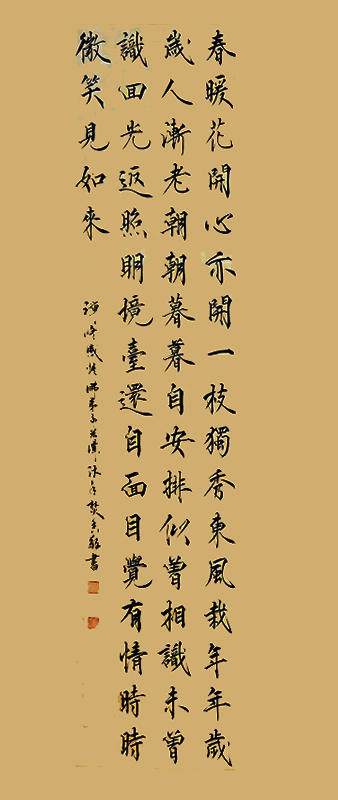 春暖花開心亦開一枝獨秀東風栽年年歲
歲人漸老朝朝暮暮自安排似曾相識未曾
識回光返照明境臺還自面目覺有情時時
微笑見如來
佛弟子焚香書